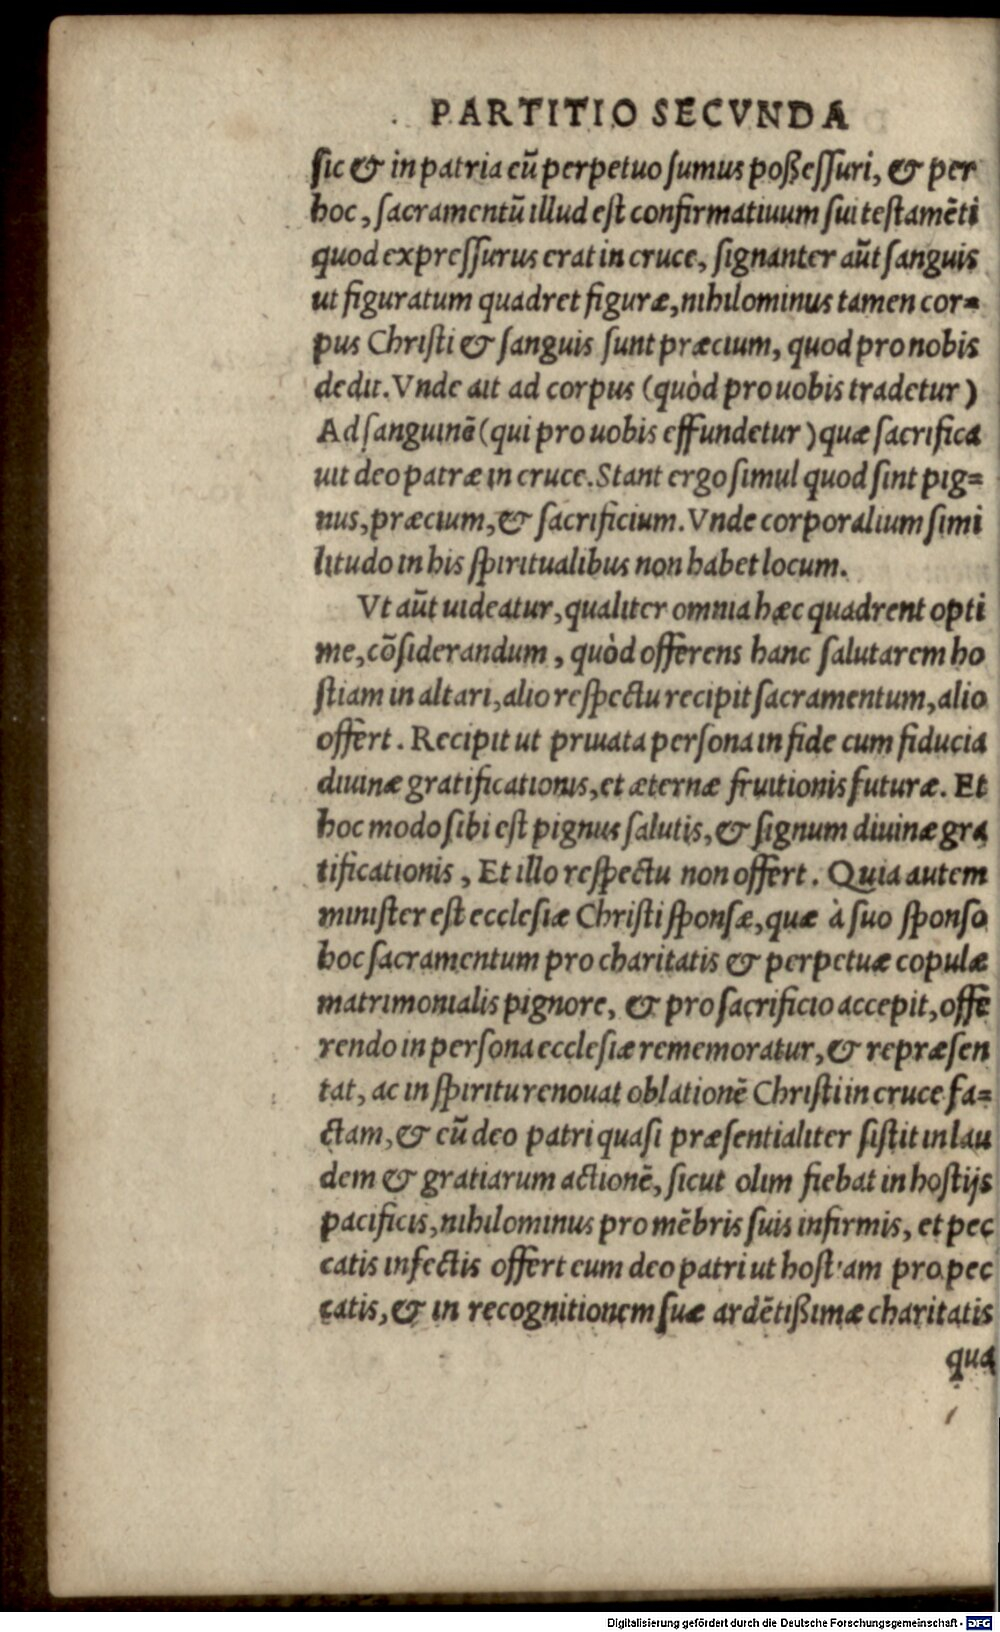 PARTITIO SECVNDA
sic & in patria cū perpetuo sumus poßessuri, & per
hoc, sacramentū illud est confirmatiuum sui testamēti
quod expressurus erat in cruce, signanter aūt sanguis
ut figuratum quadret figuræ, nihilominus tamen cor=
pus Christi & sanguis sunt præcium, quod pro nobis
dedit. Vnde ait ad corpus (quòd pro uobis tradetur)
Ad sanguinē (qui pro uobis effundetur) quæ sacrifica
uit deo patræ in cruce. Stant ergo simul quod sint pig=
nus, præcium, & sacrificium. Vnde corporalium simi
litudo in his spiritualibus non habet locum.
Vt aūt uideatur, qualiter omnia hæc quadrent opti
me, cōsiderandum, quòd offerens hanc salutarem ho
stiam in altari, alio respectu recipit sacramentum, alio
offert. Recipit ut priuata persona in fide cum fiducia
diuinæ gratificationis, et æternæ fruitionis futuræ. Et
hoc modo sibi est pignus salutis, & signum diuinæ gra
tificationis, Et illo respectu non offert. Quia autem
minister est ecclesiæ Christi sponsæ, quæ à suo sponso
hoc sacramentum pro charitatis & perpetuæ copulæ
matrimonialis pignore, & pro sacrificio accepit, offe
rendo in persona ecclesiæ rememoratur, & repræsen
tat, ac in spiritu renouat oblationē Christi in cruce fa=
ctam, & eū deo patri quasi præsentialiter sistit in lau
dem & gratiarum actionē, sicut olim fiebat in hostijs
pacificis, nihilominus pro mēbris suis infirmis, et pec
catis infectis offert eum deo patri ut hostiam pro pec
catis, & in recognitionem suæ ardētißimæ charitatis
qua
Digitalisierung gefördert durch die Deutsche Forschungsgemeinschaft - DFG